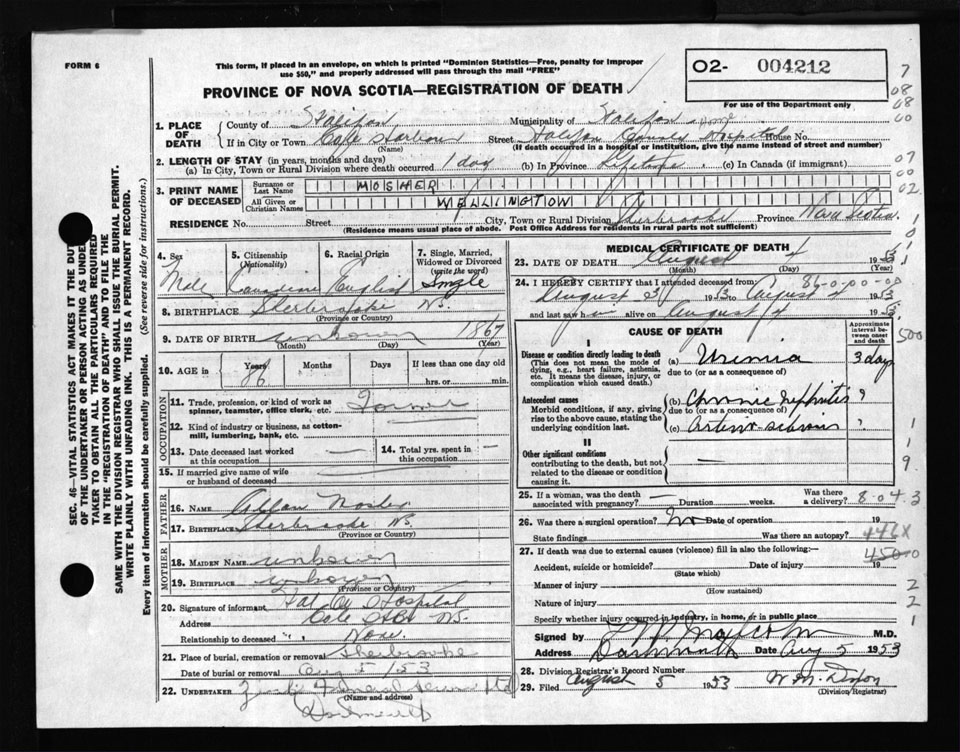 FORM 6
This form, if placed in an envelope, on which is printed "Dominion Statistics—Free, penalty for improper
use $50," and properly addressed will pass through the mail "FREE"
PROVINCE OF NOVA SCOTIA—REGISTRATION OF DEATH
O2- 004212
For use of the Department only
1. PLACE OF DEATH County of Halifax Municipality of Halifax
If in City or Town Cole Harbour Street Halifax County Hospital House No.
(Name) (If death occurred in a hospital or institution, give the name instead of street and number)
2. LENGTH OF STAY (in years, months and days)
(a) In City, Town or Rural Division where death occurred 1 day (b) In Province Lifetime (c) In Canada (if immigrant)
3. PRINT NAME OF DECEASED Surname or Last Name MOSHER
All Given or Christian Names WELLINGTON
RESIDENCE No. Street City, Town or Rural Division Sherbrooke Province Nova Scotia
(Residence means usual place of abode. Post Office Address for residents in rural parts not sufficient)
4. Sex Male
5. Citizenship (Nationality) Canadian
6. Racial Origin English
7. Single, Married, Widowed or Divorced (write the word) Single
8. BIRTHPLACE Sherbrooke N.S.
(Province or Country)
9. DATE OF BIRTH unknown 1867
(Month) (Day) (Year)
10. AGE in Years 86 Months Days If less than one day old
hrs. or min.
OCCUPATION
11. Trade, profession, or kind of work as spinner, teamster, office clerk, etc.
12. Kind of industry or business, as cotton-mill, lumbering, bank, etc. —
13. Date deceased last worked at this occupation —
14. Total yrs. spent in this occupation —
15. If married give name of wife or husband of deceased
FATHER
16. NAME Mosher
17. BIRTHPLACE Sherbrooke N.S.
(Province or Country)
MOTHER
18. MAIDEN NAME unknown
19. BIRTHPLACE unknown
(Province or Country)
20. Signature of informant Hal Co Hospital
Address Cole Hbr N.S.
Relationship to deceased " " None
21. Place of burial, cremation or removal Sherbrooke
Date of burial or removal Aug 5/53
22. UNDERTAKER Funeral Ltd
(Name and address)
Dartmouth
MEDICAL CERTIFICATE OF DEATH
23. DATE OF DEATH August 4 1953
(Month) (Day) (Year)
24. I HEREBY CERTIFY that I attended deceased from 86-0-00-00
August 3 1953 to August 4 1953
and last saw him alive on August 4 1953
CAUSE OF DEATH
Approximate interval between onset and death
I
Disease or condition directly leading to death (a) Uremia 3 days
(This does not mean the mode of dying, e.g., heart failure, asthenia, etc. It means the disease, injury, or complication which caused death.)
due to (or as a consequence of)
Antecedent causes (b) Chronic Nephritis ?
Morbid conditions, if any, giving rise to the above cause, stating the underlying condition last.
due to (or as a consequence of)
(c) Arterio-sclerosis ?
II
Other significant conditions
contributing to the death, but not related to the disease or condition causing it.
25. If a woman, was the death associated with pregnancy? — Duration weeks. Was there a delivery?
8-04 3
26. Was there a surgical operation? No Date of operation 19
State findings Was there an autopsy?
446X
27. If death was due to external causes (violence) fill in also the following:—
4500
Accident, suicide or homicide? Date of injury 19
(State which)
Manner of injury
(How sustained)
Nature of injury
Specify whether injury occurred in industry, in home, or in public place
Signed by Malcolm M.D.
Address Dartmouth Date Aug 5 1953
28. Division Registrar's Record Number
29. Filed August 5 1953 W.M. Dixon
(Division Registrar)
SEC. 46—VITAL STATISTICS ACT MAKES IT THE DUTY
OF THE UNDERTAKER OR PERSON ACTING AS UNDER-
TAKER TO OBTAIN ALL THE PARTICULARS REQUIRED
IN THE "REGISTRATION OF DEATH" AND TO FILE THE
SAME WITH THE DIVISION REGISTRAR WHO SHALL ISSUE THE BURIAL PERMIT.
WRITE PLAINLY WITH UNFADING INK. THIS IS A PERMANENT RECORD.
Every item of information should be carefully supplied. (See reverse side for instructions.)